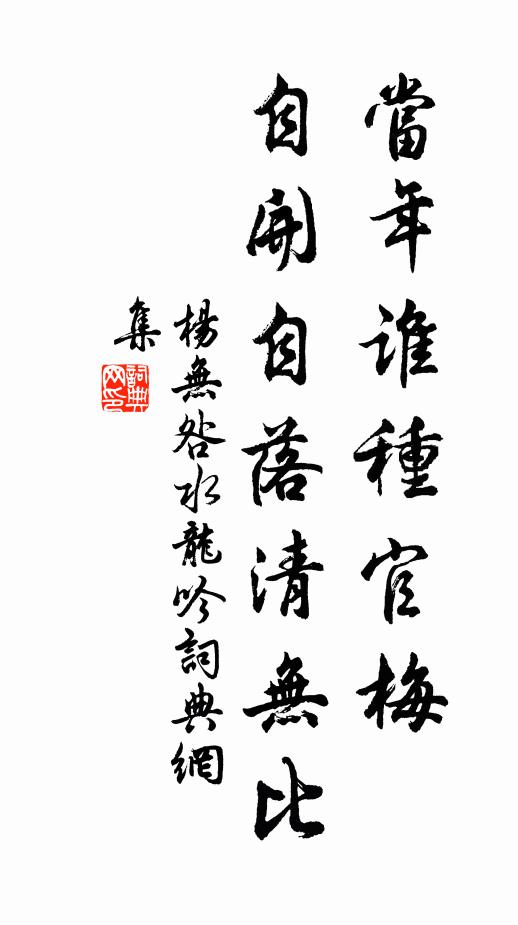 當年誰種官梅
自開自落清無比
楊無咎水龍吟詞典網
集
詞典網印